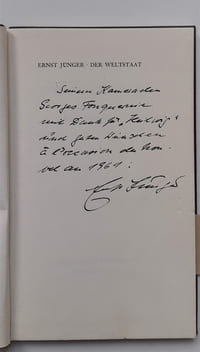 ERNST JÜNGER · DER WELTSTAAT
Seinem Kameraden
Georges
mit Dank für
und guten Wünschen
à l'occasion du Nou-
vel an 1961:
Ernst Jünger